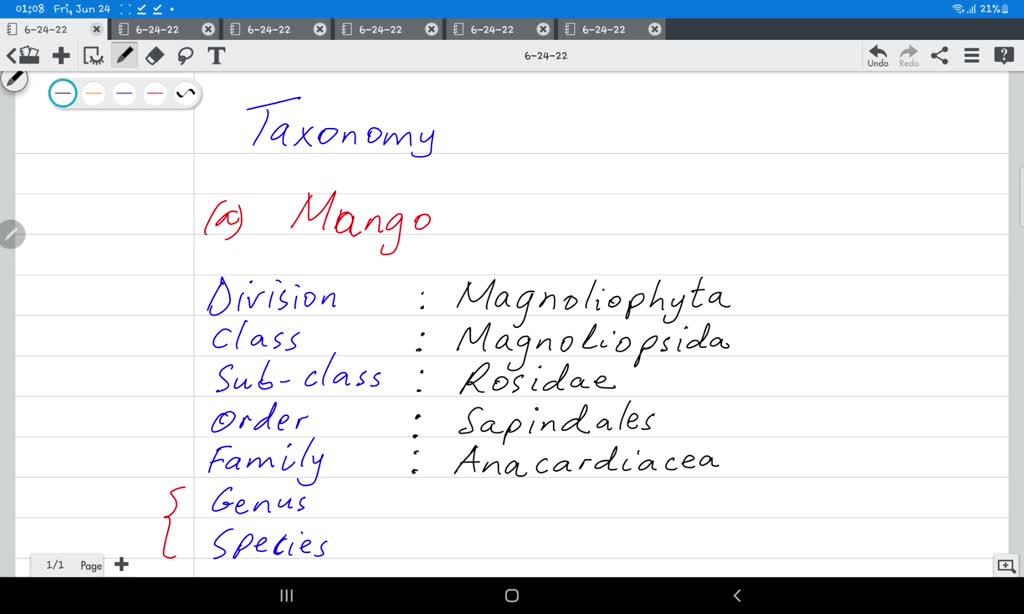 01:08 Fri, Jun 24 21%
6-24-22 6-24-22 6-24-22 6-24-22 6-24-22 6-24-22
T 6-24-22 Undo Redo ?
Taxonomy
(a) Mango
Division : Magnoliophyta
Class : Magnoliopsida
Sub-class : Rosidae
Order : Sapindales
Family : Anacardiacea
Genus
Species
1/1 Page